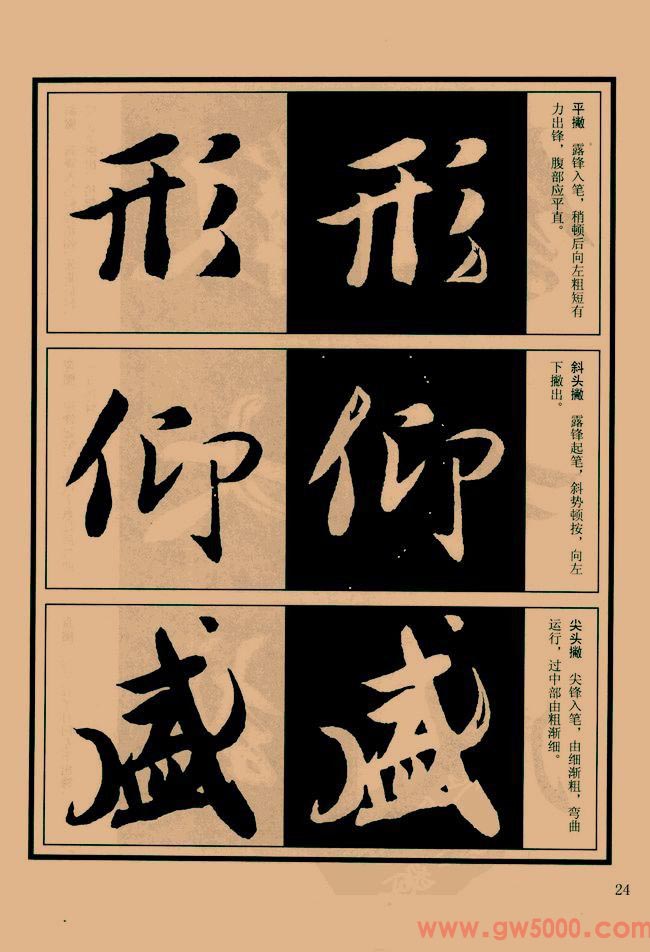 形 形
平撇 露锋入笔，稍顿后向左粗短有
力出锋，腹部应平直。
仰 仰
斜头撇 露锋起笔，斜势顿按，向左
下撇出。
盛 盛
尖头撇 尖锋入笔，由细渐粗，弯曲
运行，过中部由粗渐细。
24
www.gw5000.com